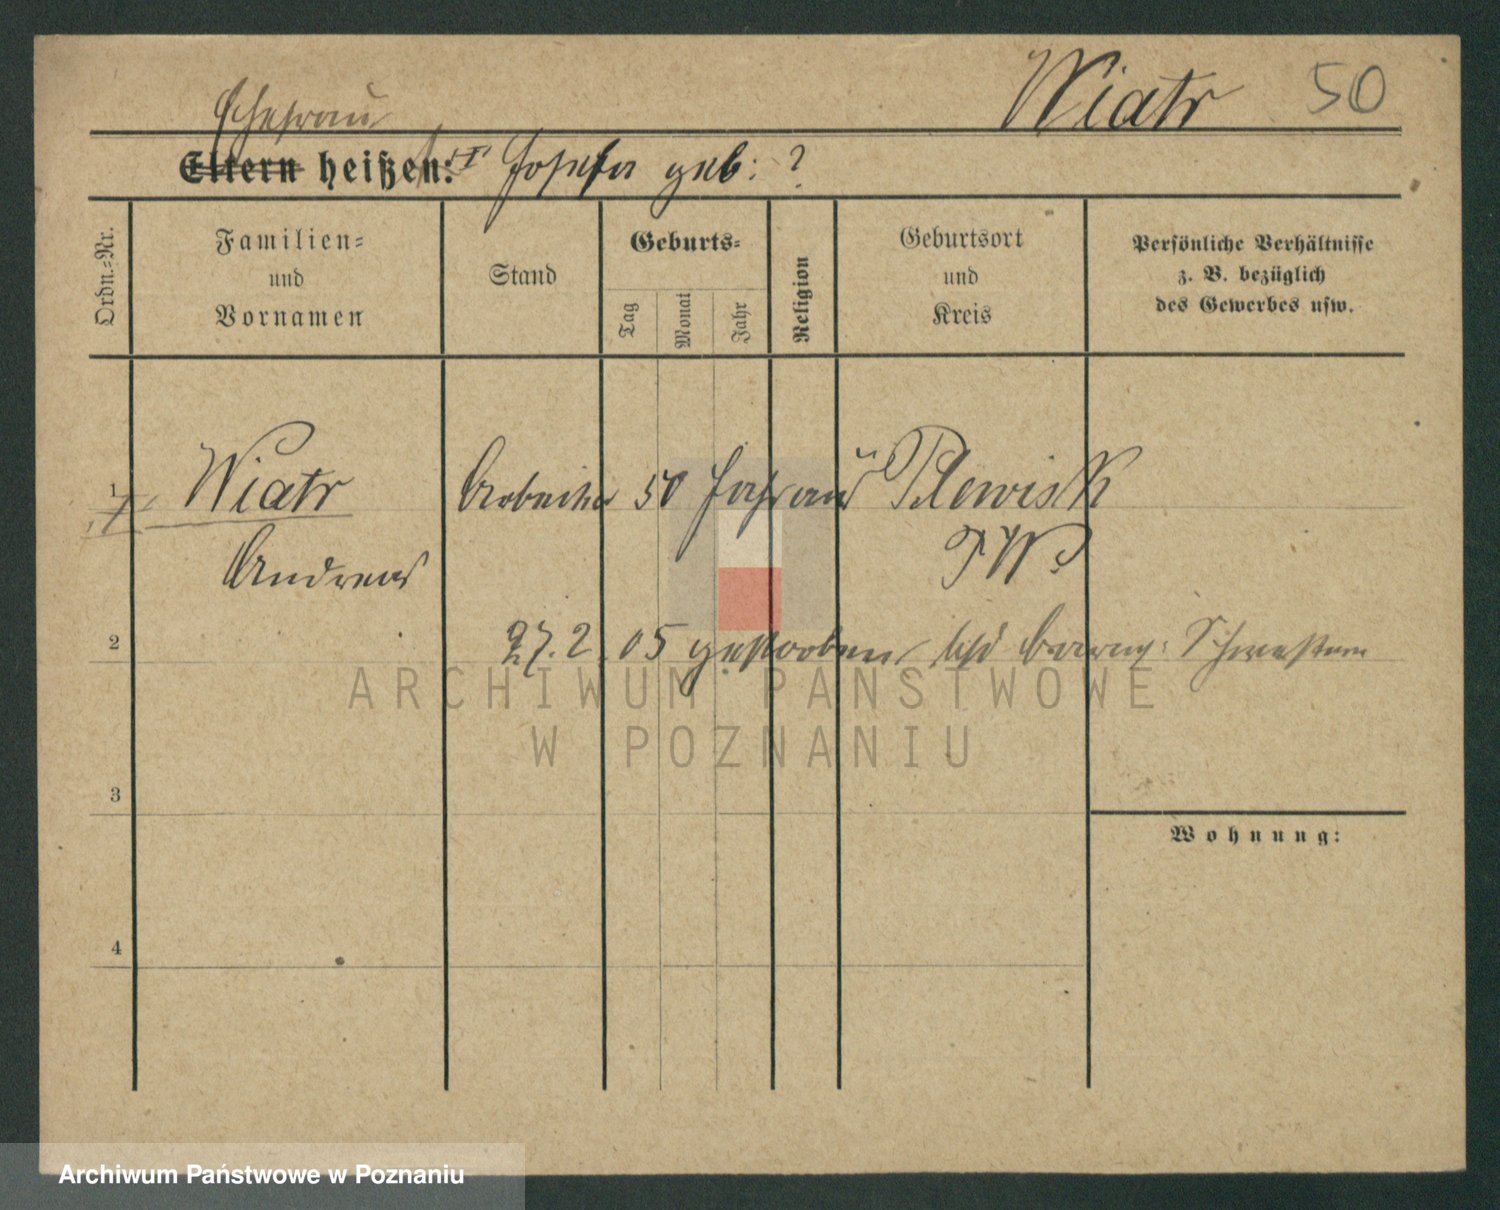 Wiatr 50
Ehefrau
Eltern heißen: Josefa geb: ?
Ordn.-Nr.
Familien-
und
Vornamen
Stand
Geburts-
Tag
Monat
Jahr
Religion
Geburtsort
und
Kreis
Persönliche Verhältnisse
z. B. bezüglich
des Gewerbes usw.
1 Wiatr Arbeiter 50 Jahr aus Plewisk
Andreas P.W.
2 27.2.05 gestorben, barmh: Schwestern
ARCHIWUM PAŃSTWOWE
W POZNANIU
3
Wohnung:
4
Archiwum Państwowe w Poznaniu